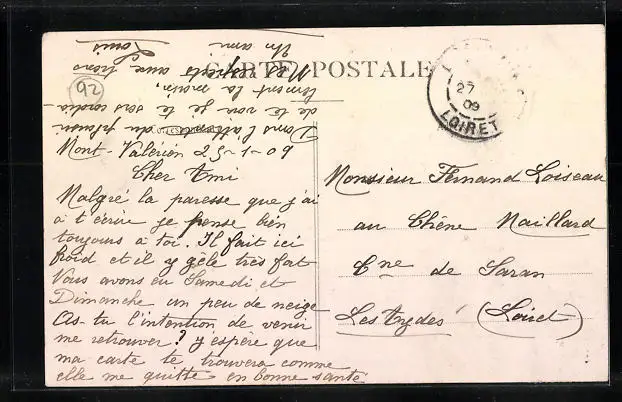 92
CARTE POSTALE
27
09
LOIRET
Mont-Valérien 25-1-09
Cher Ami
Malgré la paresse que j'ai
à t'écrire je pense bien
toujours à toi. Il fait ici
froid et il y gèle très fort
Vous avons eu Samedi et
Dimanche un peu de neige
As-tu l'intention de venir
me retrouver? j'espère que
ma carte te trouvera comme
elle me quitte en bonne santé
Dans l'attente du plaisir
de te voir je te sers cordia-
lement la main.
Mes respects aux tiens
Un ami
Louis
Monsieur Fernand Loiseau
au Chêne Maillard
Cne de Saran
Les Aydes (Loiret)